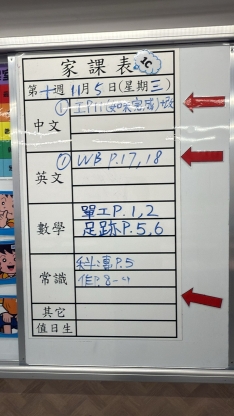 家課表 1C
第十週11月5日(星期三)
中文
① 工P.11
英文
① WB P.17,18
數學
單工P.1,2
足跡P.5,6
常識
P.5
作P.3-4
其它
值日生